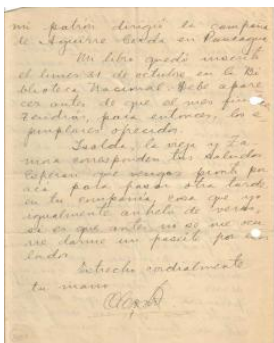 mi patrón dirigió la campaña
de Aguirre Cerda en Rancagua
Mi libro quedó inscrito
el lunes 21 de octubre en la Bi
blioteca Nacional. Debe apare
cer antes de que el mes
Tendrá, para entonces, los e
jemplares ofrecidos.
Isolda, la vieja y Za
mora corresponden tus saludos
Esperan que vengas pronto por
acá para pasar otra tarde
en tu compañía, cosa que yo
igualmente anhelo de veras,
si es que antes no se me ocu
rre darme un paseíto por esos
lados.
Estrecho cordialmente
tu mano